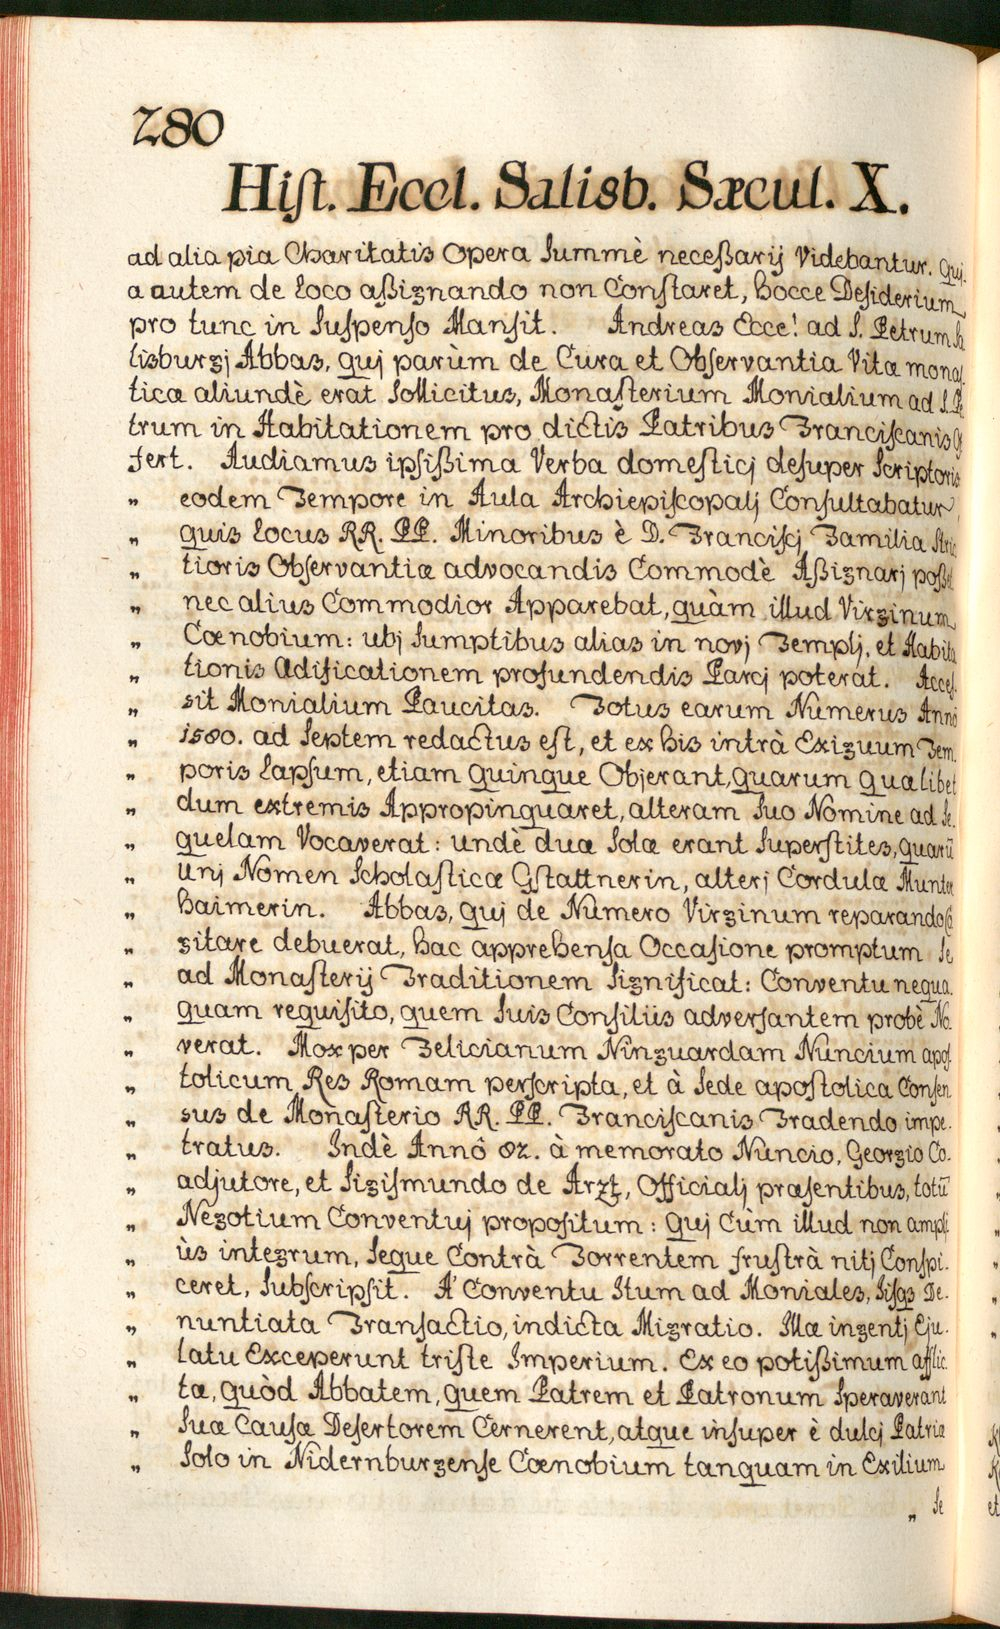 280
Hist. Eccl. Salisb. Sæcul. X.
ad alia pia Charitatis Opera Summè necessarij Videbantur. Qui-
a autem de Loco assignando non Constaret, hocce Desiderium
pro tunc in Suspenso Mansit. Andreas Ecce! ad S. Petrum Sa
lisburgj Abbas, quj parùm de Cura et Observantia Vitæ monas-
ticæ aliundè erat Sollicitus, Monasterium Monialium ad S. Pe
trum in Habitationem pro dictis Patribus Franciscanis Of
fert. Audiamus ipsissima Verba domesticj desuper Scriptoris
„ eodem Tempore in Aula Archiepiscopalj Consultabatur,
„ quis Locus RR. PP. Minoribus è D. Franciscj Familia Stric
„ tioris Observantiæ advocandis Commodè Assignarj posset
„ nec alius Commodior Apparebat, quàm illud Virginum
„ Cœnobium: ubj Sumptibus alias in novj Templj, et Habita
„ tionis Ædificationem profundendis Parcj poterat. Acces-
„ sit Monialium Paucitas. Totus earum Numerus Annô
„ 1580. ad Septem redactus est, et ex his intrà Exiguum Tem-
„ poris Lapsum, etiam Quinque Objerant, quarum Quælibet
„ dum extremis Appropinquaret, alteram Suo Nomine ad Se-
„ quelam Vocaverat: undè duæ Solæ erant Superstites, quarū
„ Unj Nomen Scholasticæ Gstattnerin, alterj Cordulæ Munten
„ haimerin. Abbas, quj de Numero Virginum reparando Co
„ gitare debuerat, hac apprehensa Occasione promptum Se
„ ad Monasterij Traditionem Significat: Conventu nequa-
„ quam requisito, quem Suis Consiliis adversantem probè No-
„ verat. Mox per Felicianum Ninguardam Nuncium apos-
„ tolicum Res Romam perscripta, et à Sede apostolica Consen
„ sus de Monasterio RR. PP. Franciscanis Tradendo impe-
„ tratus. Indè Annô 82. à memorato Nuncio, Georgio Co-
„ adjutore, et Sigismundo de Arzt, Officialj præsentibus, totū
„ Negotium Conventuj propositum: Quj Cùm illud non ampli
„ ùs integrum, Seque Contrà Torrentem frustrà nitj Conspi-
„ ceret, Subscripsit. A' Conventu Itum ad Moniales, Iisqs De-
„ nuntiata Transactio, indicta Migratio. Illæ ingentj Eju-
„ latu Exceperunt triste Imperium. Ex eo potissimum afflic-
„ tæ, quòd Abbatem, quem Patrem et Patronum Speraverant
„ Suæ Causæ Desertorem Cernerent, atque insuper è dulcj Patriæ
„ Solo in Nidernburgense Cœnobium tanquam in Exilium
„ Se